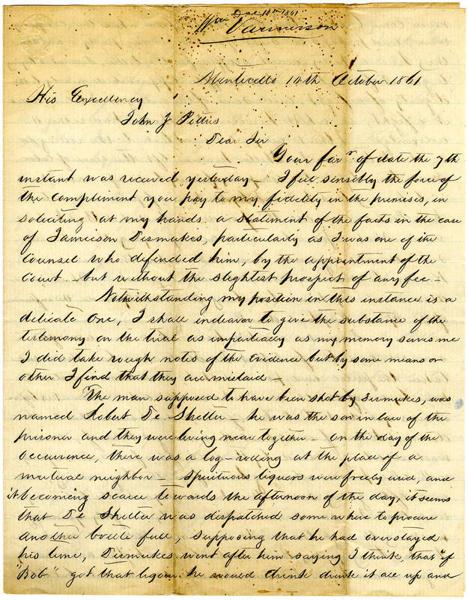 Wm
Vannerson
Monticello 14th October 1861
His Excellency
John J Pettus
Dear Sir
Your favr of date the 7th
instant was received yesterday – I feel sensibly the force of
the compliment you pay to my fidelity in the premises, in
soliciting at my hands, a statement of the facts in the case
of Jamieson Dismukes, particularly as I was one of the
counsel who defended him, by the appointment of the
Court – but without the slightest prospect of any fee –
Notwithstanding my position in this instance is a
delicate one, I shall endeavor to give the substance of the
testimony on the trial as impartially as my memory serves me
I did take rough notes of the evidence but by some means or
other I find that they are mislaid –
The man supposed to have been shot by Dismukes, was
named Robert De Shetler – he was the son in law of the
prisoner and they were living near together – On the day of the
occurrence, there was a log-rolling at the place of a
mutual neighbor – Spirituous liquors were freely used, and
it becoming scarce towards the afternoon of the day, it seems
that De Shetler was dispatched some where to procure
another bottle full, supposing that he had overstayed
his time, Dismukes went after him saying I think, that "if
"Bob" got that liquor he would drink it all up and